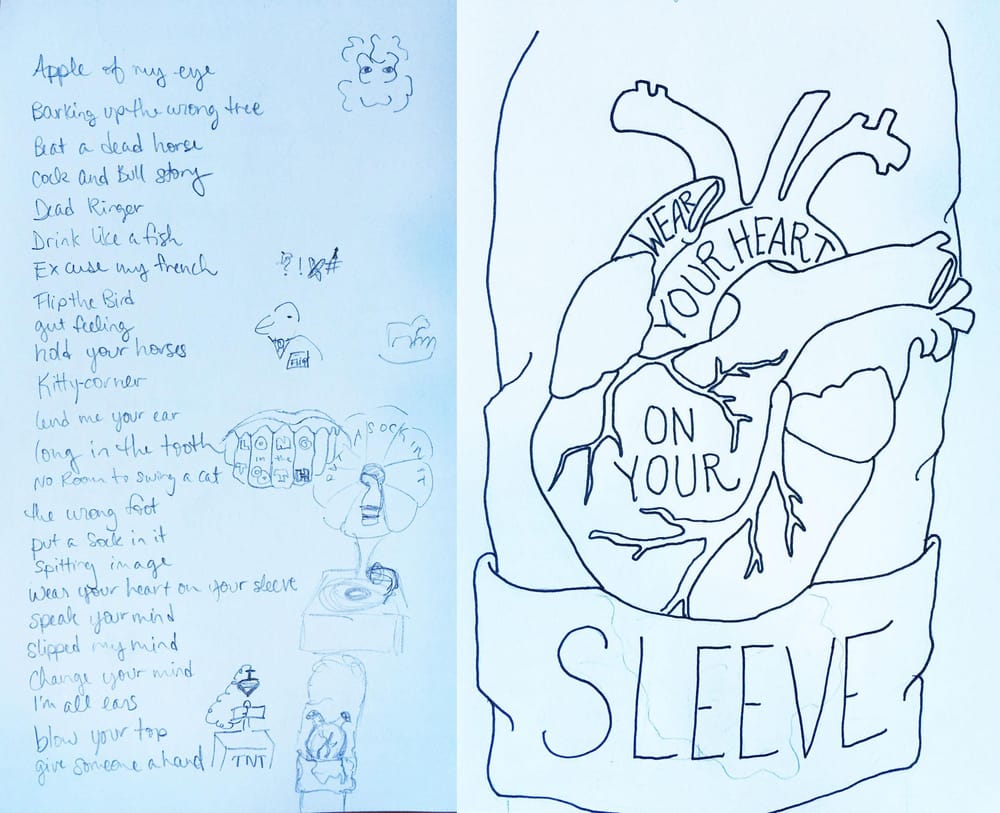 Apple of my eye
Barking up the wrong tree
Beat a dead horse
Cock and Bull story
Dead Ringer
Drink like a fish
Excuse my french
?!X#
Flip the Bird
gut feeling
hold your horses
Kitty-corner
lend me your ear
long in the tooth
LONG
in the
TOOTH
No Room to swing a cat
the wrong foot
put a sock in it
PUT A SOCK IN IT
spitting image
wear your heart on your sleeve
speak your mind
slipped my mind
Change your mind
I'm all ears
blow your top
give someone a hand
TNT
WEAR
YOUR HEART
ON
YOUR
SLEEVE